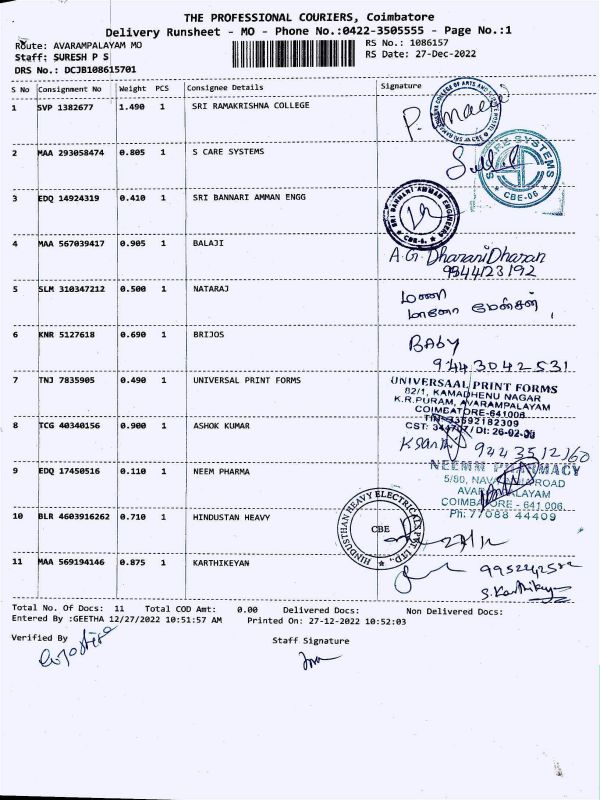 THE PROFESSIONAL COURIERS, Coimbatore
Delivery Runsheet - MO - Phone No.:0422-3505555 - Page No.:1
Route: AVARAMPALAYAM MO
RS No.: 1086157
Staff: SURESH P S
RS Date: 27-Dec-2022
DRS No.: DCJB108615701
S No Consignment No Weight PCS Consignee Details Signature
1 SVP 1382677 1.490 1 SRI RAMAKRISHNA COLLEGE
2 MAA 293058474 0.805 1 S CARE SYSTEMS
S CARE SYSTEMS
CBE-06
3 EDQ 14924319 0.410 1 SRI BANNARI AMMAN ENGG
SRI BANNARI AMMAN ENGINEERS
CBE-6.
4 MAA 567039417 0.905 1 BALAJI
A.G. DharaniDharan
9344123192
5 SLM 310347212 0.500 1 NATARAJ
6 KNR 5127618 0.690 1 BRIJOS
BABY
9443042531
7 TNJ 7835905 0.490 1 UNIVERSAL PRINT FORMS
UNIVERSAAL PRINT FORMS
82/1, KAMADHENU NAGAR
K.R.PURAM, AVARAMPALAYAM
COIMBATORE-641006
8 TCG 40340156 0.900 1 ASHOK KUMAR
9443512160
9 EDQ 17450516 0.110 1 NEEM PHARMA
NEEMM PHARMACY
ROAD
COIMBATORE - 641 006.
Ph: 77088 44409
10 BLR 4603916262 0.710 1 HINDUSTAN HEAVY
HINDUSTHAN HEAVY ELECTRICALS PVT. LTD.,
CBE
27/12
11 MAA 569194146 0.875 1 KARTHIKEYAN
S.Karthikeyan
Total No. Of Docs: 11 Total COD Amt: 0.00 Delivered Docs: Non Delivered Docs:
Entered By :GEETHA 12/27/2022 10:51:57 AM Printed On: 27-12-2022 10:52:03
Verified By
Staff Signature